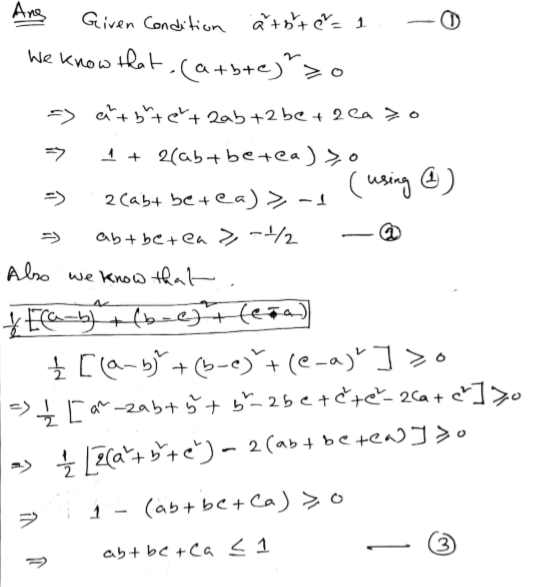 Ans Given Condition a²+b²+c²= 1 — ①
We know that, (a+b+c)² ≥ 0
⇒ a²+b²+c²+2ab+2bc+2ca ≥ 0
⇒ 1 + 2(ab+bc+ca) ≥ 0
⇒ 2(ab+bc+ca) ≥ -1 (using ①)
⇒ ab+bc+ca ≥ -1/2 — ②
Also we know that
½ [(a-b)² + (b-c)² + (c-a)
½ [(a-b)²+(b-c)²+(c-a)²] ≥ 0
⇒ ½ [a²-2ab+b²+b²-2bc+c²+c²-2ca+c²] ≥ 0
⇒ ½ [2(a²+b²+c²) - 2(ab+bc+ca)] ≥ 0
⇒ 1 - (ab+bc+ca) ≥ 0
⇒ ab+bc+ca ≤ 1 — ③